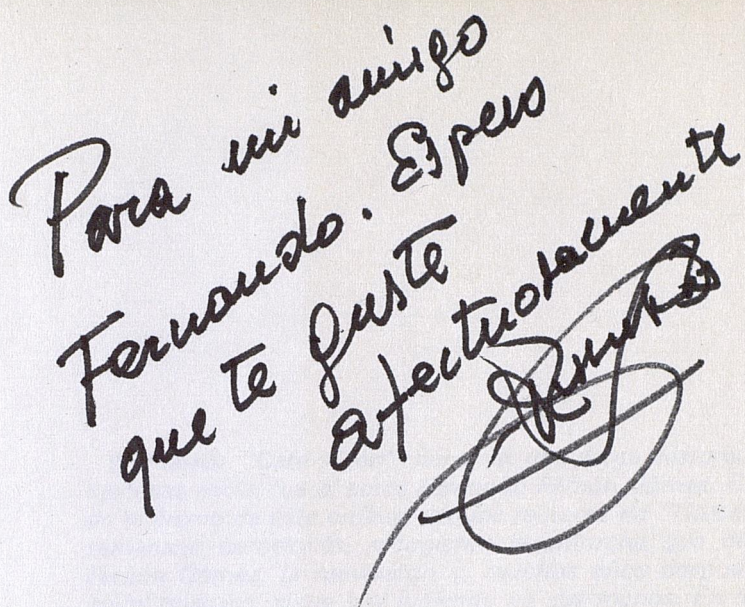 Para mi amigo
Fernando. Espero
que te guste
afectuosamente